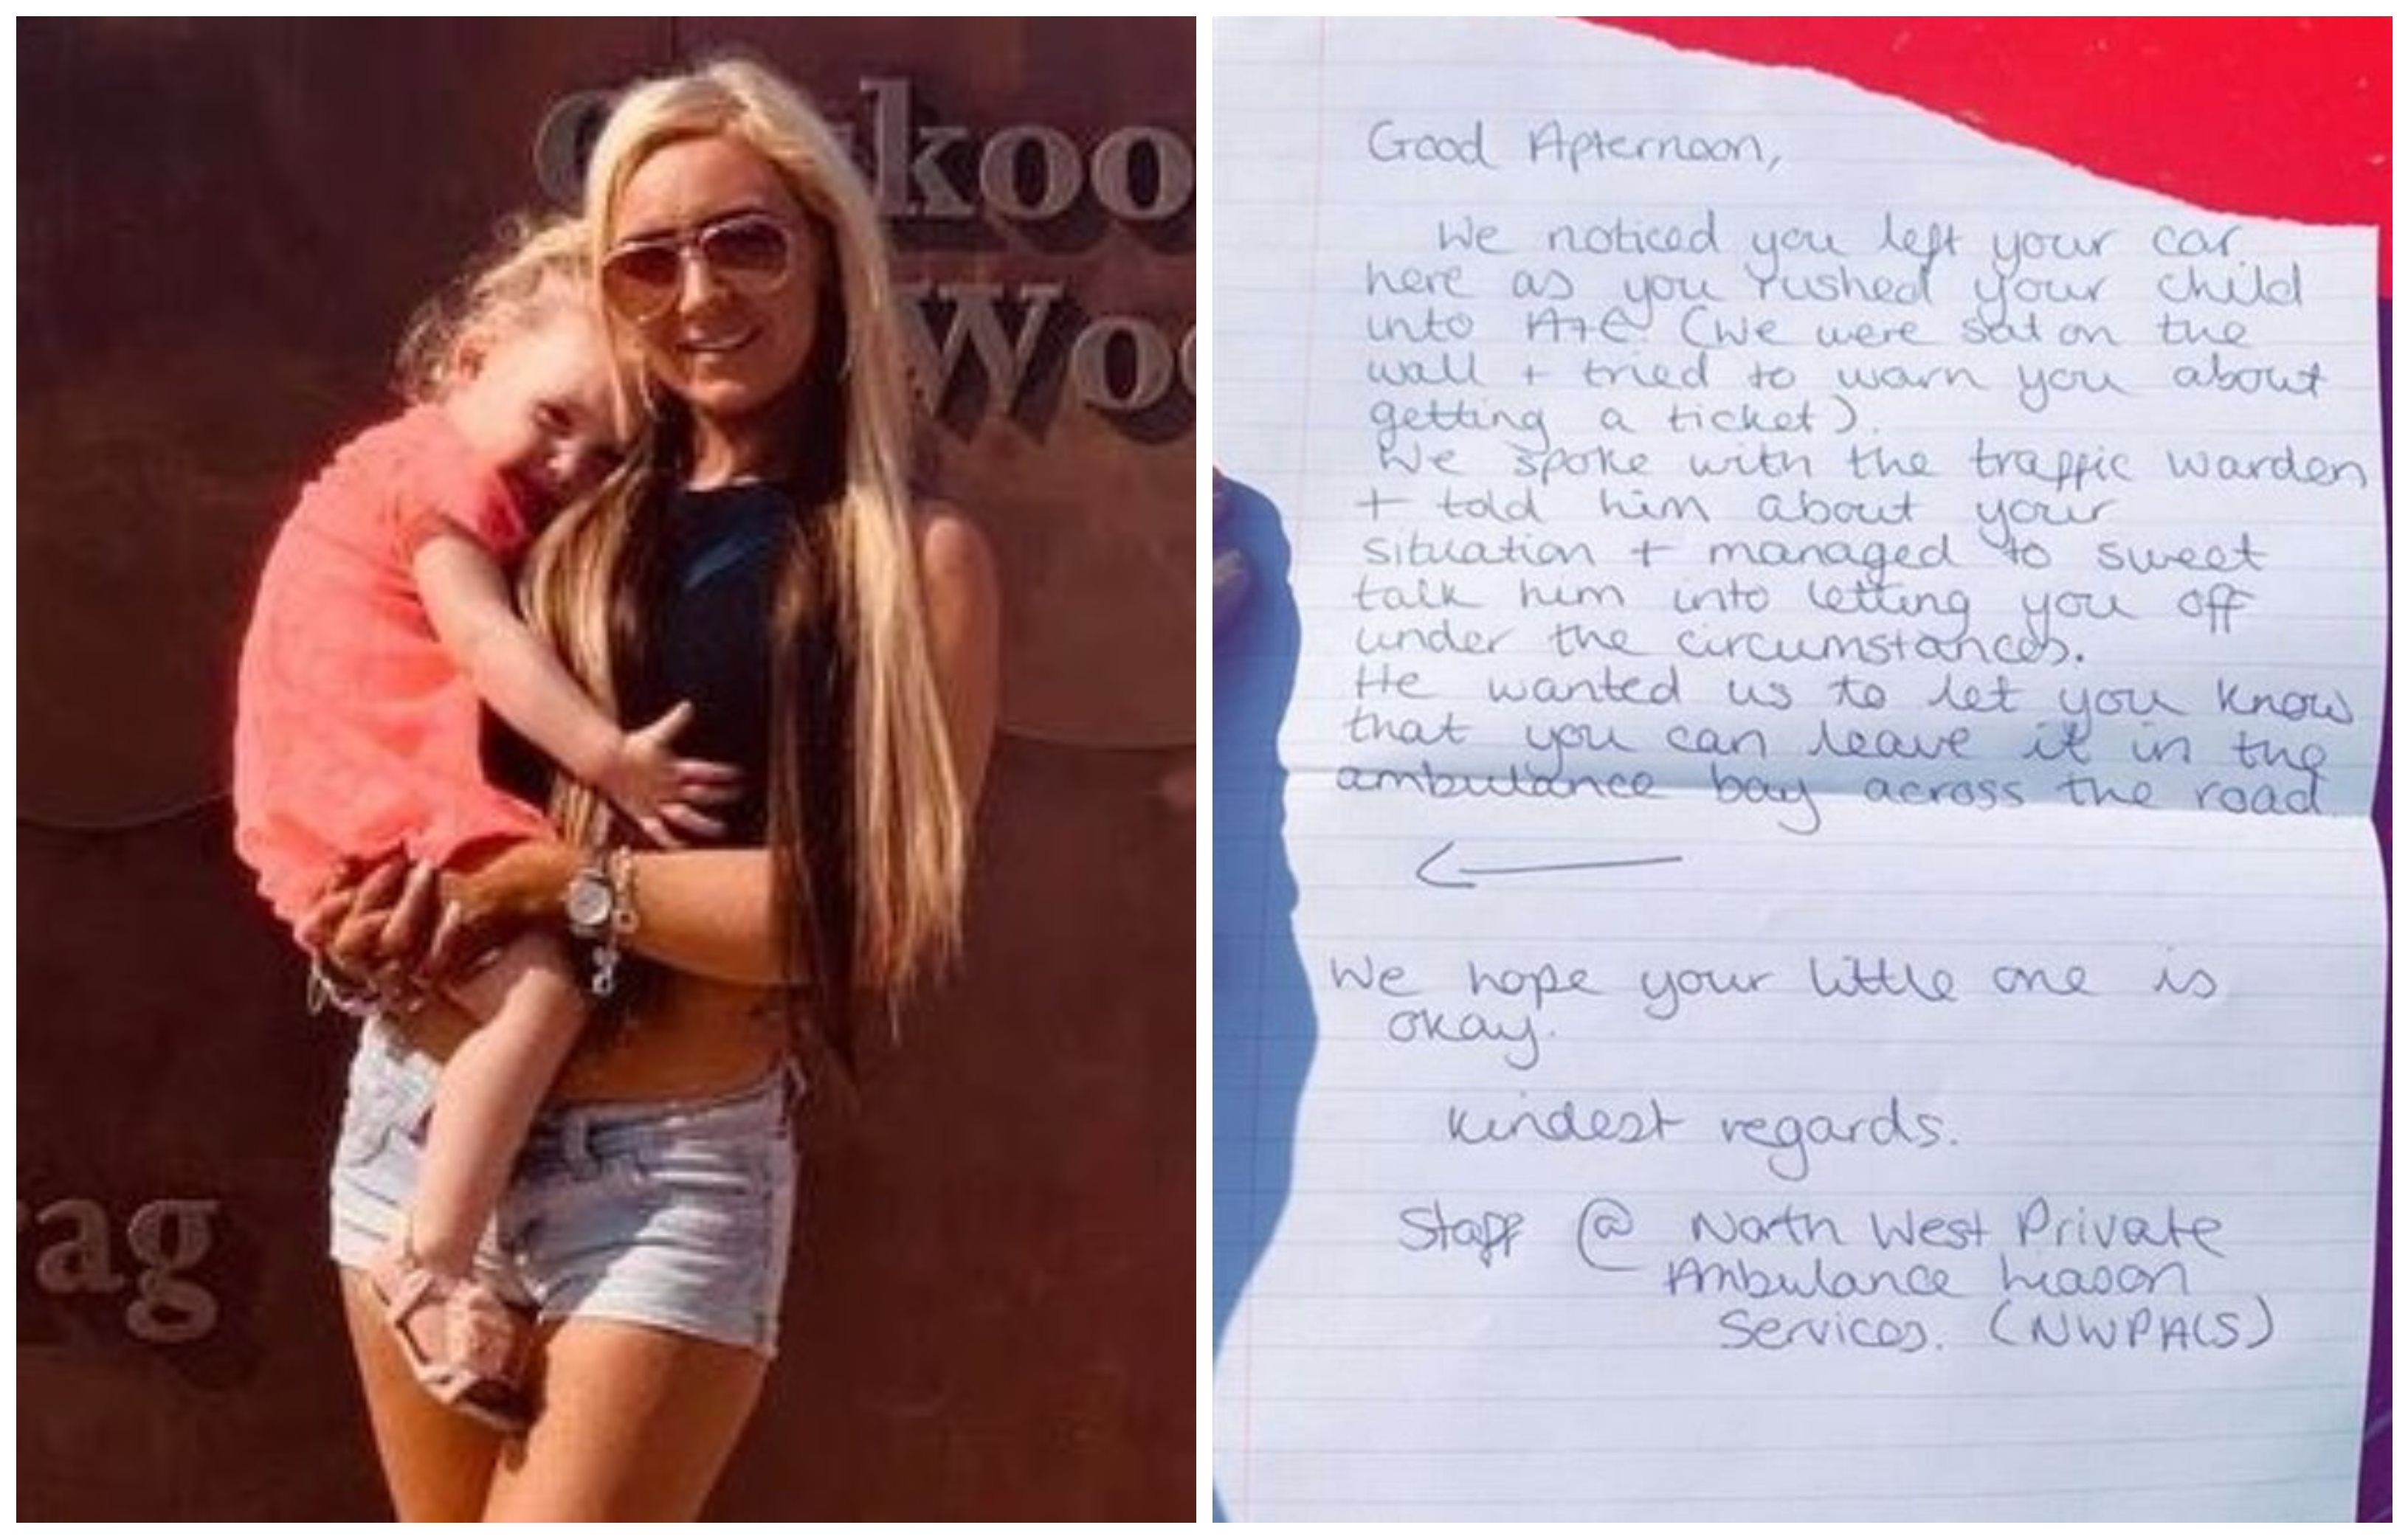 koo
Woo
ag
Good Afternoon,
We noticed you left your car
here as you rushed your child
into A+E (We were sat on the
wall + tried to warn you about
getting a ticket).
We spoke with the traffic warden
+ told him about your
situation + managed to sweet
talk him into letting you off
under the circumstances.
He wanted us to let you know
that you can leave it in the
ambulance bay across the road
We hope your little one is
okay.
Kindest regards.
Staff @ North West Private
Ambulance Liason
Services. (NWPALS)